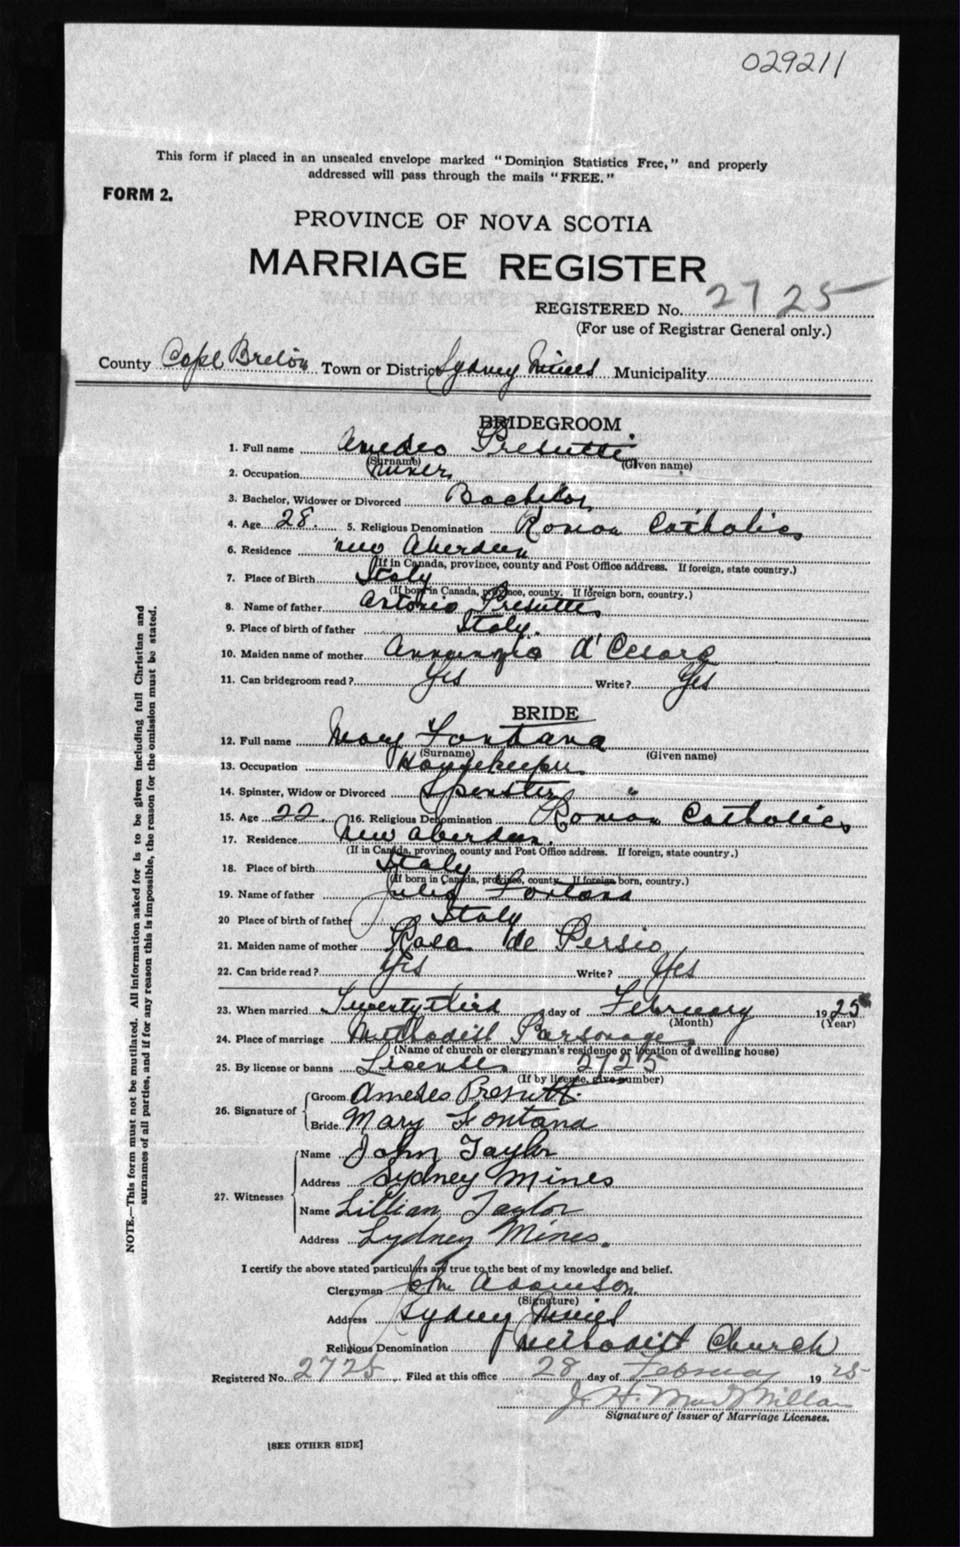 029211
This form if placed in an unsealed envelope marked "Dominion Statistics Free," and properly
addressed will pass through the mails "FREE."
FORM 2.
PROVINCE OF NOVA SCOTIA
MARRIAGE REGISTER
REGISTERED No. 2725
(For use of Registrar General only.)
County Cape Breton Town or District Sydney Mines Municipality
BRIDEGROOM
1. Full name Amedeo Presutti
(Surname) (Given name)
2. Occupation Miner
3. Bachelor, Widower or Divorced Bachelor
4. Age 28. 5. Religious Denomination Roman Catholic
6. Residence New Aberdeen
(If in Canada, province, county and Post Office address. If foreign, state country.)
7. Place of Birth Italy
(If born in Canada, province, county. If foreign born, country.)
8. Name of father Presutti
9. Place of birth of father Italy.
10. Maiden name of mother Annunzia d'Cesare
11. Can bridegroom read? Yes Write? Yes
BRIDE
12. Full name Mary Fontana
(Surname) (Given name)
13. Occupation Housekeeper
14. Spinster, Widow or Divorced Spinster
15. Age 22. 16. Religious Denomination Roman Catholic
17. Residence New Aberdeen.
(If in Canada, province, county and Post Office address. If foreign, state country.)
18. Place of birth Italy
(If born in Canada, province, county. If foreign born, country.)
19. Name of father Fontana
20 Place of birth of father Italy
21. Maiden name of mother Rosa de Persio
22. Can bride read? Yes Write? Yes
23. When married Twenty third day of February 1925
(Month) (Year)
24. Place of marriage Methodist Parsonage.
(Name of church or clergyman's residence or location of dwelling house)
25. By license or banns License 2725
(If by license, give number)
26. Signature of Groom Amedeo Presutti
Bride Mary Fontana
27. Witnesses Name John Taylor
Address Sydney Mines
Name Lillian Taylor
Address Sydney Mines.
I certify the above stated particulars are true to the best of my knowledge and belief.
Clergyman John Adamson
(Signature)
Address Sydney Mines
Religious Denomination Methodist Church
Registered No. 2725 Filed at this office 28 day of February 1925
J. H. MacMillan
Signature of Issuer of Marriage Licenses.
[SEE OTHER SIDE]
NOTE.—This form must not be mutilated. All information asked for is to be given including full Christian and
surnames of all parties, and if for any reason this is impossible, the reason for the omission must be stated.